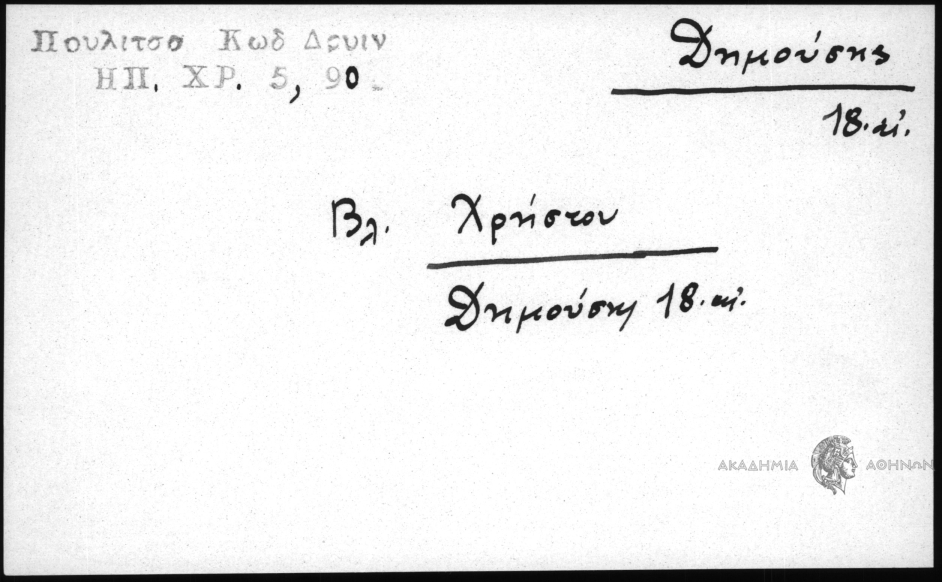 Πουλιτσα Κωδ Δρυιν
ΗΠ. ΧΡ. 5, 90.
Δημούσης
18. αἰ.
Βλ. Χρήστου
Δημούση 18. αἰ.
ΑΚΑΔΗΜΙΑ ΑΘΗΝΩΝ